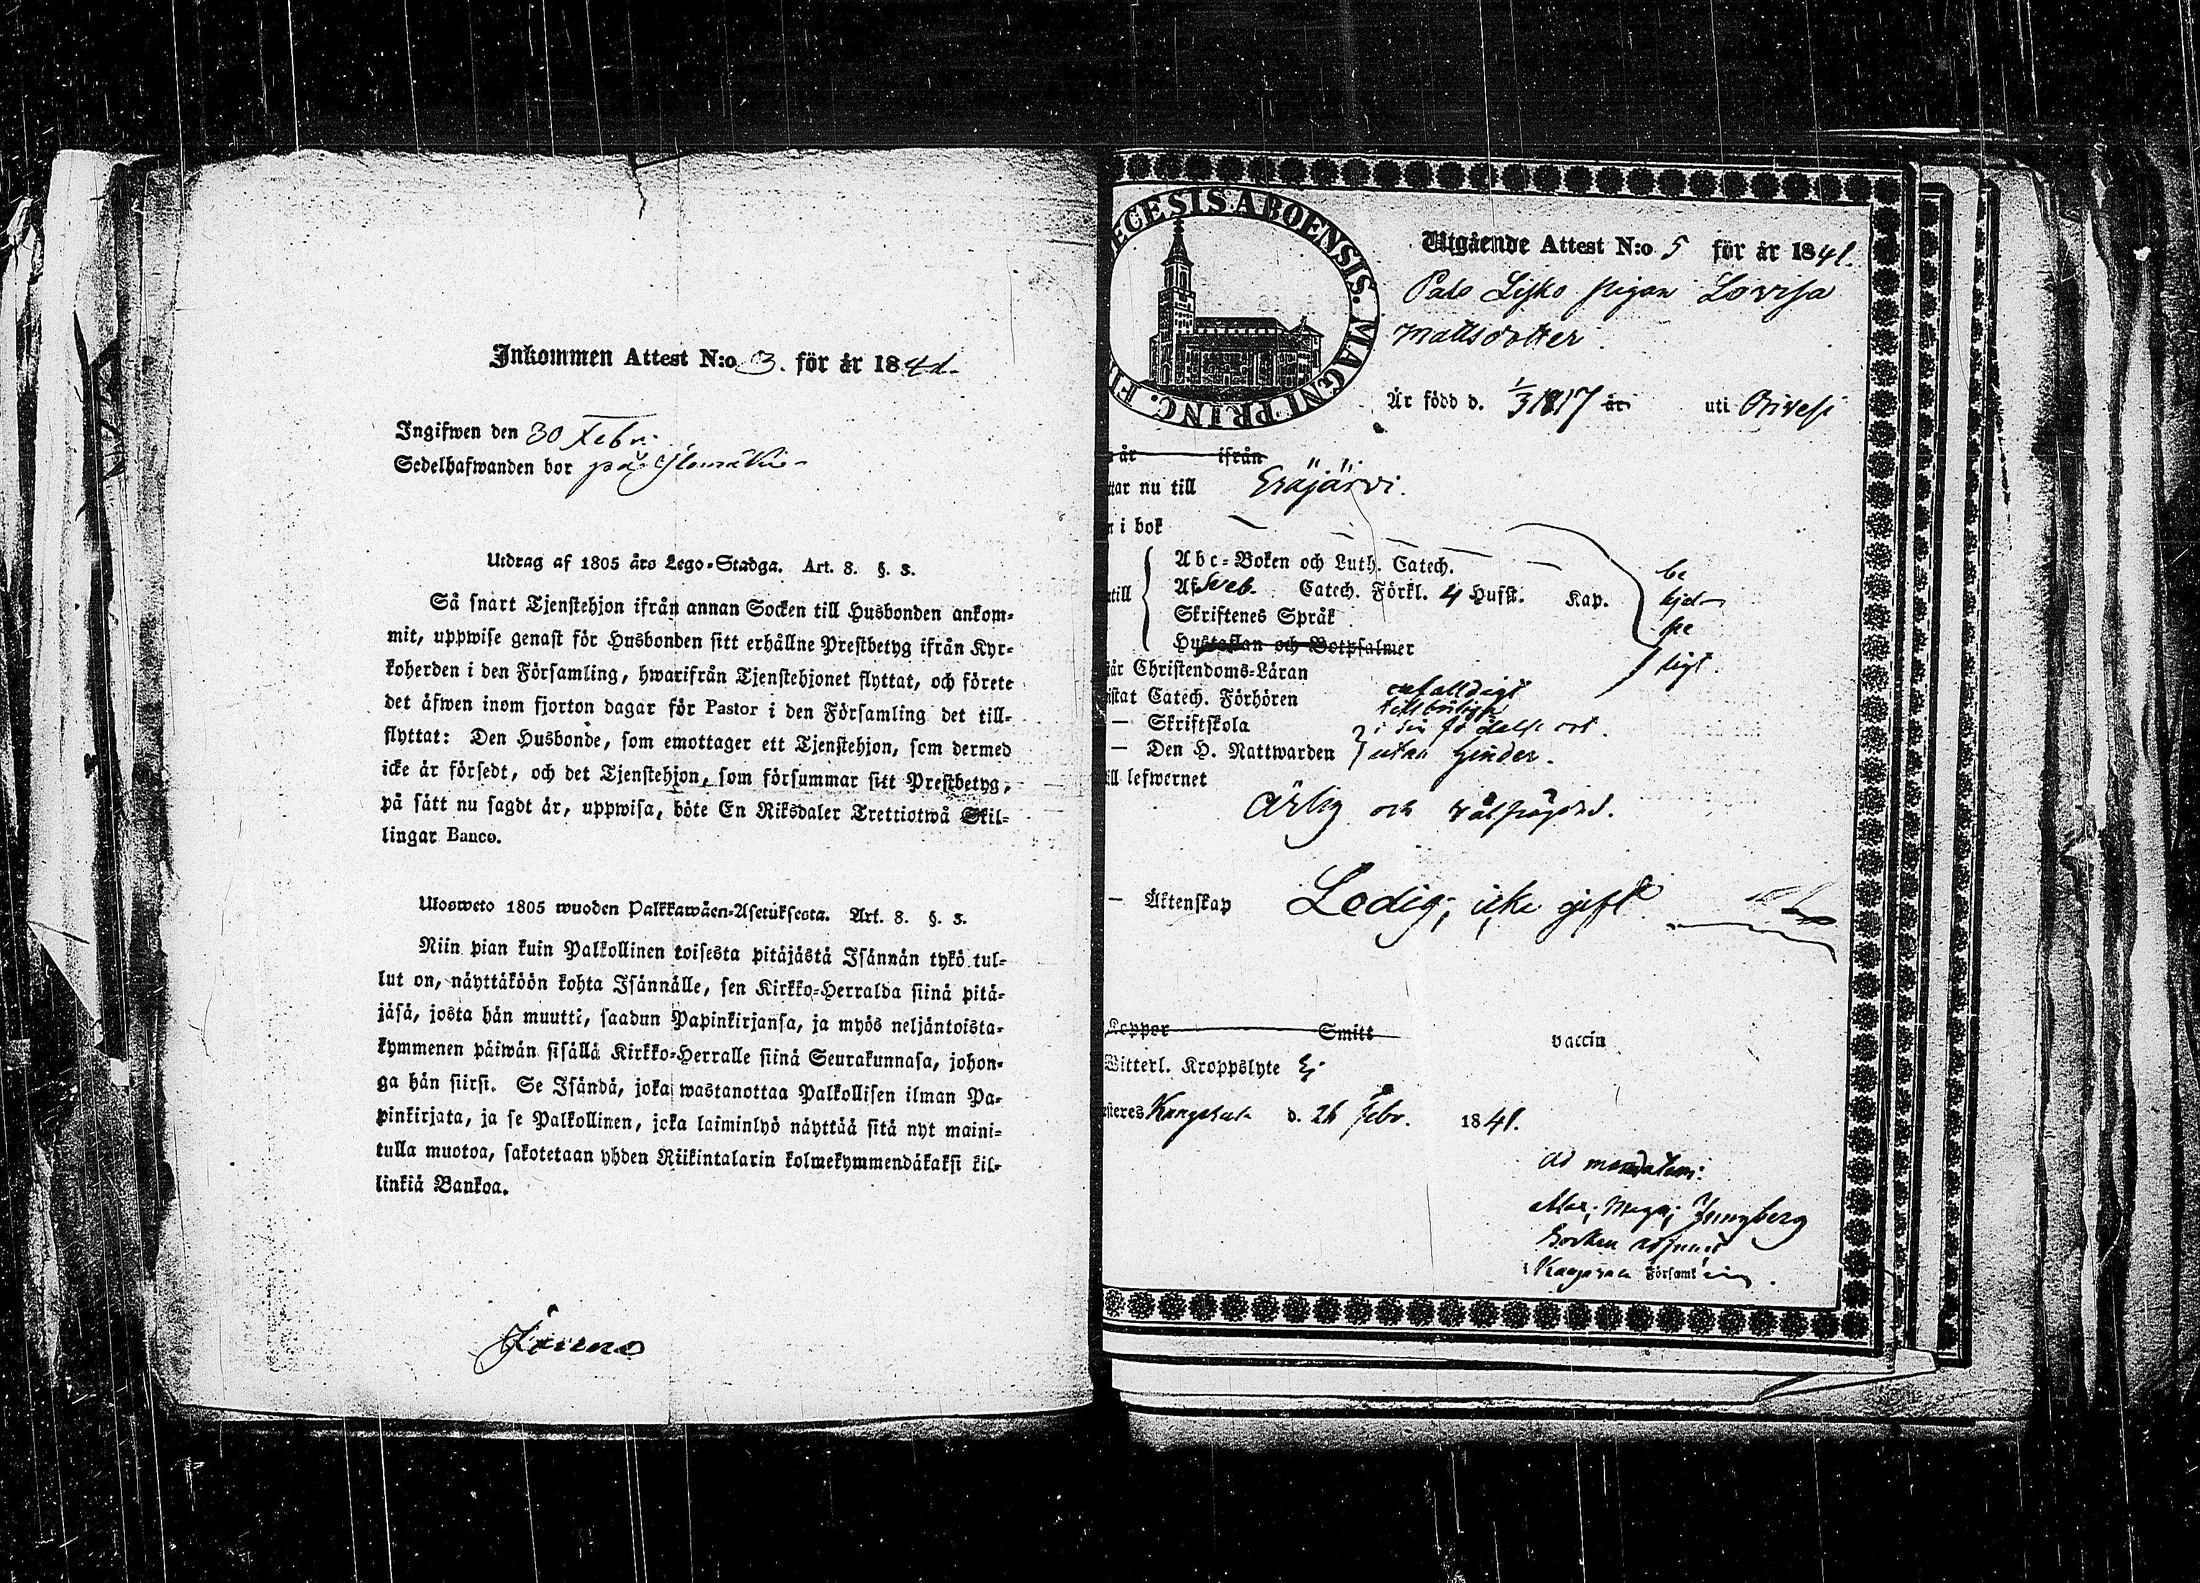 Inkommen Attest N:o 3. för år 184
Ingifwen den 30 Febr.
Sedelhafwanden bor på
Utdrag af 1805 års Lego-Stadga. Art. 8. §. 3.
Så snart Tjenstehjon ifrån annan Socken till Husbonden ankom-
mit, uppwise genast för Husbonden sitt erhållne Prestbetyg ifrån Kyr-
koherden i den Församling, hwarifrån Tjenstehjonet flyttat, och förete
det äfwen inom fjorton dagar för Pastor i den Församling det till-
flyttat: Den Husbonde, som emottager ett Tjenstehjon, som dermed
icke är försedt, och det Tjenstehjon, som försummar sitt Prestbetyg,
på sätt nu sagdt är, uppwisa, böte En Riksdaler Trettiotwå Skil-
lingar Banco.
Ulosweto 1805 wuoden Palkkawäen-Asetuksesta. Art. 8. §. 3.
Niin pian kuin Palkollinen toisesta pitäjästä Isännän tykö tul-
lut on, näyttäköön kohta Isännälle, sen Kirkko-Herralda siinä pitä-
jäsä, josta hän muutti, saadun Papinkirjansa, ja myös neljäntoista-
kymmenen päiwän sisällä Kirkko-Herralle siinä Seurakunnasa, johon-
ga hän siirsi. Se Isändä, joka wastanottaa Palkollisen ilman Pa-
pinkirjata, ja se Palkollinen, joka laiminlyö näyttää sitä nyt maini-
tulla muotoa, sakotetaan yhden Riikintalarin kolmekymmendäkaksi kil-
linkiä Bankoa.
ECESIS ABOENSIS. MAGNI PRINC. FI
Utgående Attest N:o 5 för år 1841.
pigan Lovisa
Mattsdotter
Är född d. 1/3 1817 år uti Orivesi
år ifrån
ttar nu till Eräjärvi.
i bok
Abc-Boken och Luth. Catech.
Af Sveb. Catech. Förkl. 4 Hufst. Kap.
Skriftenes Språk
Hustaflan och Botpsalmer
be
hjel
pe
ligt.
står Christendoms-Läran enfalldigt
istat Catech. Förhören
— Skriftskola i sin födelse ort.
— Den H. Nattwarden utan hinder.
ill lefwernet
ärlig och väl frägdad.
— Äktenskap Ledig, icke gift
Koppor Smitt vaccin
Witterl. Kroppslyte Ej
steres Kangasala d. 26 Febr. 1841.
Ad mandatum:
Ljungberg
Socken adjunct
i Kangasala Församl